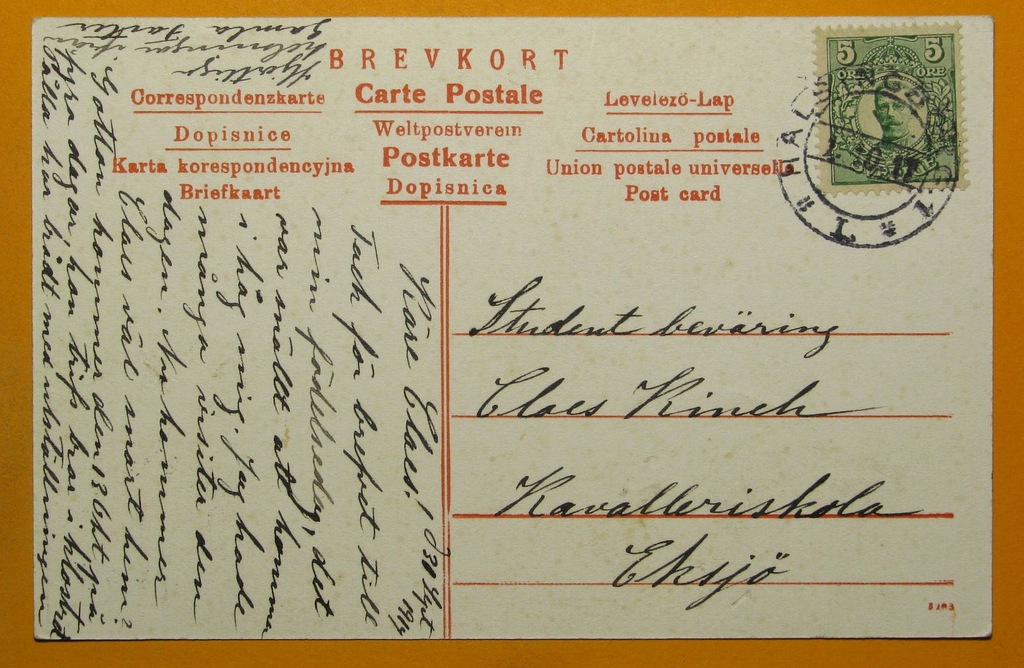 BREVKORT
Correspondenzkarte
Carte Postale
Levelező-Lap
Dopisnice
Weltpostverein
Cartolina postale
Karta korespondencyjna
Postkarte
Union postale universelle
Briefkaart
Dopisnica
Post card
5 5
ÖRE ÖRE
Student beväring
Claes Kinch
Kavalleriskola
Eksjö
Käre Claes!
Tack för brefvet till
min födelsedag, det
var snällt att komma
i håg mig. Jag hade
många visiter den
dagen. Nu kommer
Claes väl snart hem?
Gotton kommer den 13 Okt på
fyra dagar, han trifs bra i
Pälla har brådt med utställningen
Hjertliga
helsningar ifrån
Gamla